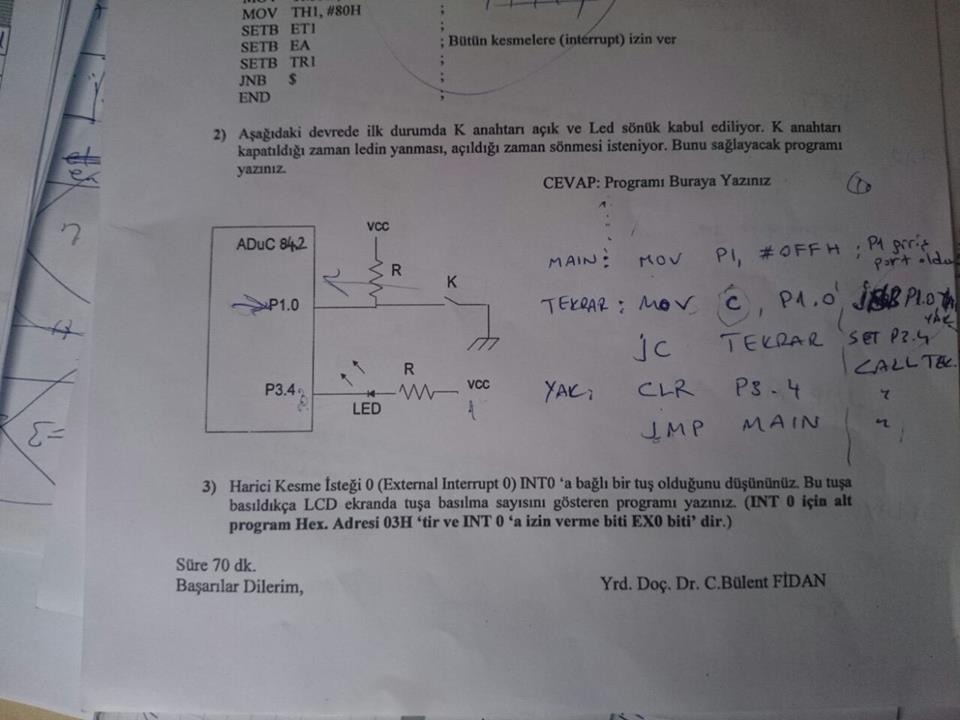 MOV TH1, #80H
SETB ET1
SETB EA ; Bütün kesmelere (interrupt) izin ver
SETB TR1 ;
JNB $ ;
END ;
2) Aşağıdaki devrede ilk durumda K anahtarı açık ve Led sönük kabul ediliyor. K anahtarı
kapatıldığı zaman ledin yanması, açıldığı zaman sönmesi isteniyor. Bunu sağlayacak programı
yazınız.
CEVAP: Programı Buraya Yazınız
ADuC 842
VCC
R
K
P1.0
P3.4
R
VCC
LED
MAIN: MOV P1, #0FFH ; P1 giriş
port oldu
TEKRAR: MOV C, P1.0 P1.0
YAK
JC TEKRAR SET P3.4
CALL TEK.
YAK: CLR P3.4
JMP MAIN
3) Harici Kesme İsteği 0 (External Interrupt 0) INT0 'a bağlı bir tuş olduğunu düşününüz. Bu tuşa
basıldıkça LCD ekranda tuşa basılma sayısını gösteren programı yazınız. (INT 0 için alt
program Hex. Adresi 03H 'tir ve INT 0 'a izin verme biti EX0 biti' dir.)
Süre 70 dk.
Başarılar Dilerim,
Yrd. Doç. Dr. C.Bülent FİDAN